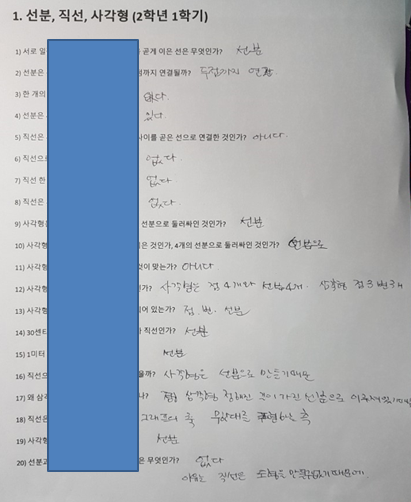 1. 선분, 직선, 사각형 (2학년 1학기)
1) 서로 일 곧게 이은 선은 무엇인가? 선분
2) 선분은 까지 연결될까? 두점까지 연결
3) 한 개의 없다.
4) 선분은 있다.
5) 직선은 사이를 곧은 선으로 연결한 것인가? 아니다.
6) 직선으 없다
7) 직선 한 없다
8) 직선은 없다.
9) 사각형 선분으로 둘러싸인 것인가? 선분
10) 사각형 은 것인가, 4개의 선분으로 둘러싸인 것인가? 선분으로
11) 사각형 것이 맞는가? 아니다
12) 사각형 사각형은 점 4개와 선분 4개 점 3 변 3개
13) 사각형 어 있는가? 점, 변, 선분
14) 30센티 직선인가? 선분
15) 1미터 선분
16) 직선으 을까? 사각형은 선분으로 만들기때문
17) 왜 삼각 나? 삼각형 선분으로
18) 직선은 그래프의 축
19) 사각형 선분
20) 선분과 은 무엇인가? 없다
이유는 직선은 도형을 만들수없기때문에